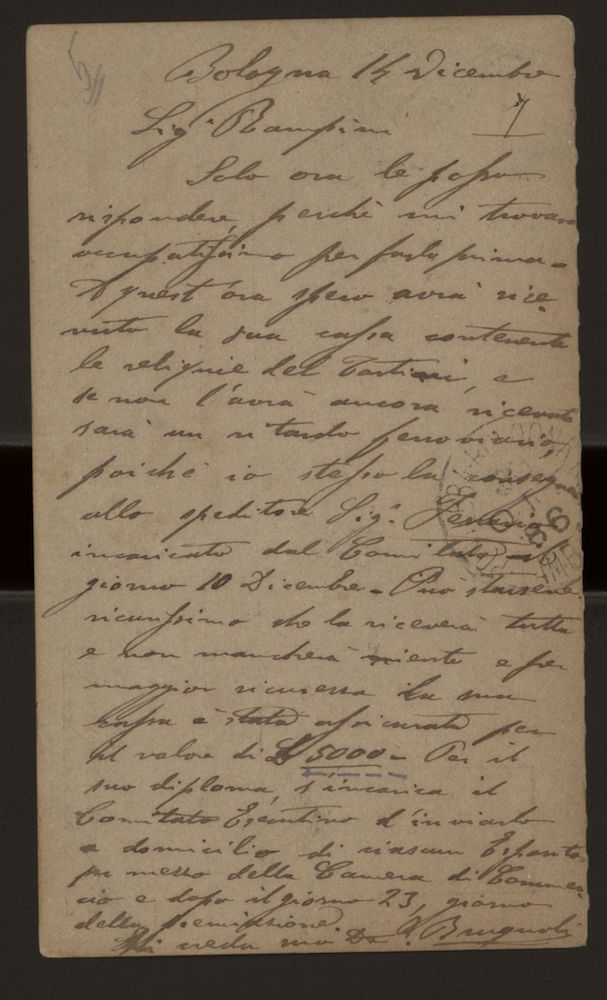 Bologna 14 Dicembre
Sig.r Rampini
Solo ora le posso
rispondere, perchè mi trovavo
occupatissimo per farlo prima.
A quest'ora spero avrà rice
vuto la sua cassa contenente
le reliquie del Tartini, e
se non l'avrà ancora ricevuta
sarà un ritardo ferroviario,
poichè io stesso la consegnai
allo speditore Sig.r
incaricato dal Comitato il
giorno 10 Dicembre. Può starsene
sicurissimo che la riceverà tutta
e non mancherà niente e per
maggior sicurezza la sua
cassa è stata assicurata per
il valore di £ 5000 - Per il
suo diploma, s'incarica il
Comitato Esecutivo d'inviarlo
a domicilio di ciascun Esposito
per mezzo della Camera di Commer
cio e dopo il giorno 23, giorno
della premiazione.
Mi creda suo Brugnoli